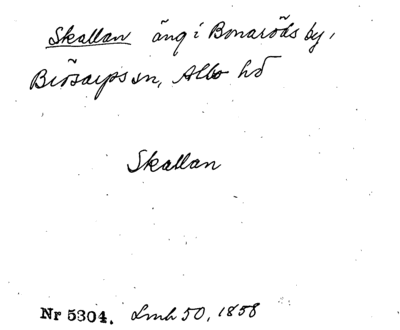 Skallan äng i Bonaröds by,
Brösarps sn, Albo hd
Skallan
Nr 5304. Lmh 50, 1858